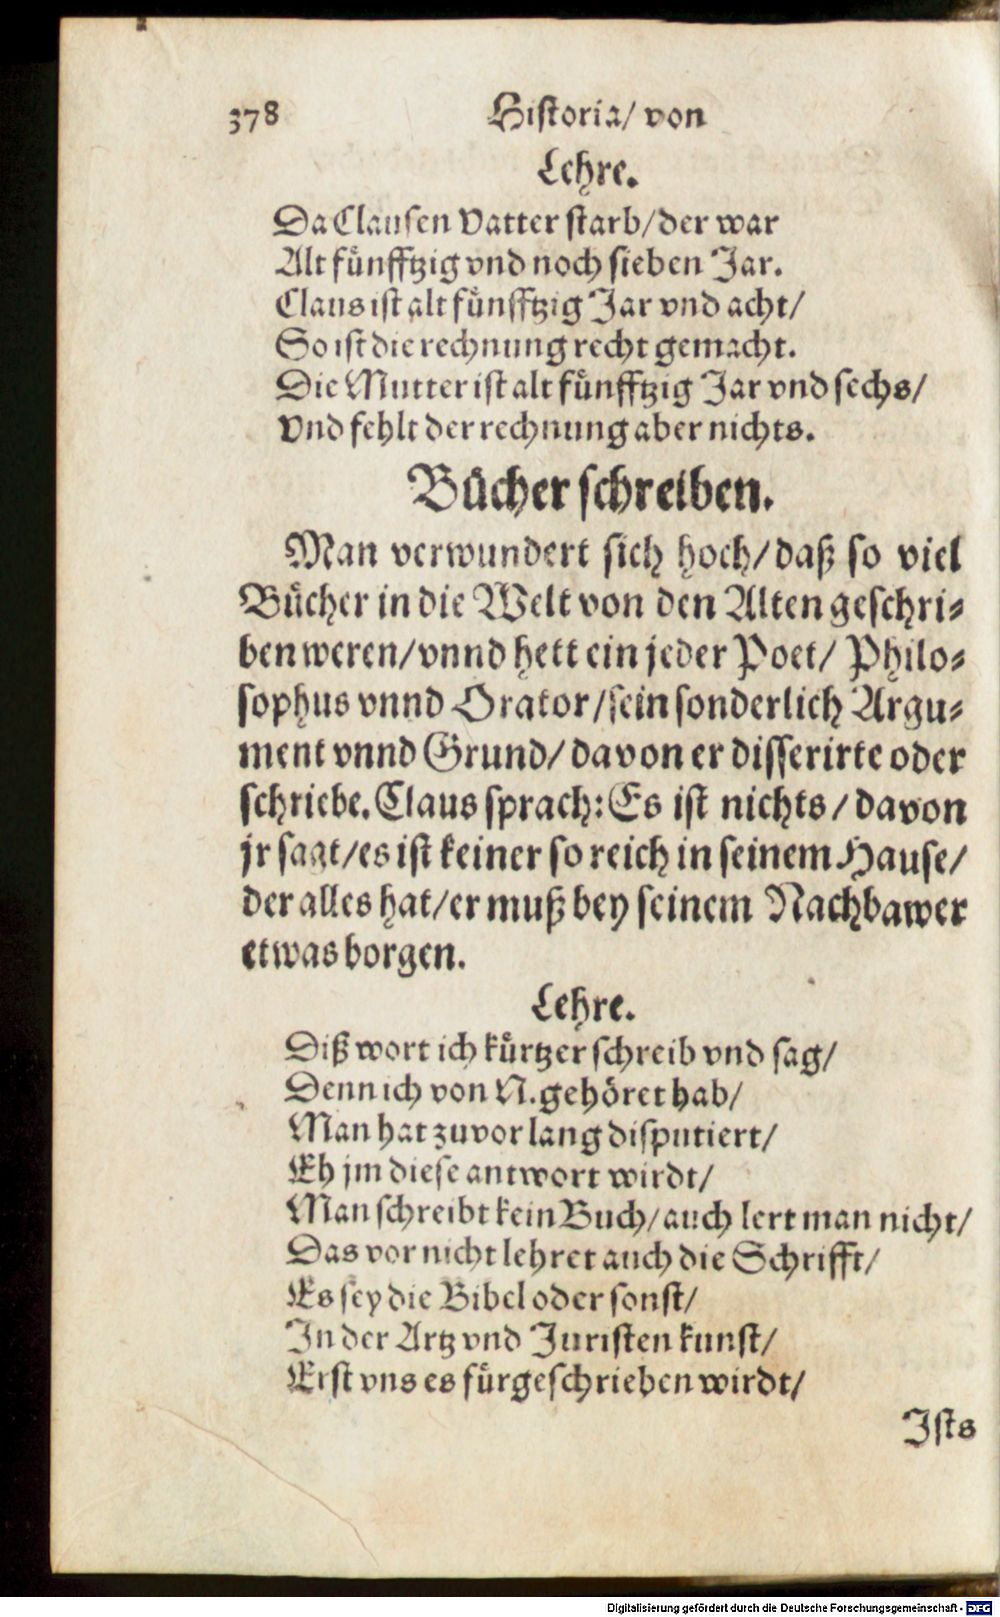 378 Historia/ von
Lehre.
Da Clausen Vatter starb/ der war
Alt fünfftzig vnd noch sieben Jar.
Claus ist alt fünfftzig Jar vnd acht/
So ist die rechnung recht gemacht.
Die Mutter ist alt fünfftzig Jar vnd sechs/
Vnd fehlt der rechnung aber nichts.
Bücher schreiben.
Man verwundert sich hoch/ daß so viel
Bücher in die Welt von den Alten geschri-
ben weren/ vnnd hett ein jeder Poet/ Philo-
sophus vnnd Orator/ sein sonderlich Argu-
ment vnnd Grund/ davon er disserirte oder
schriebe. Claus sprach: Es ist nichts/ davon
jr sagt/ es ist keiner so reich in seinem Hause/
der alles hat/ er muß bey seinem Nachbawer
etwas borgen.
Lehre.
Diß wort ich kürtzer schreib vnd sag/
Denn ich von N. gehöret hab/
Man hat zuvor lang disputiert/
Eh jm diese antwort wirdt/
Man schreibt kein Buch/ auch lert man nicht/
Das vor nicht lehret auch die Schrifft/
Es sey die Bibel oder sonst/
In der Artz vnd Juristen kunst/
Erst vns es fürgeschrieben wirdt/
Ists
Digitalisierung gefördert durch die Deutsche Forschungsgemeinschaft - DFG